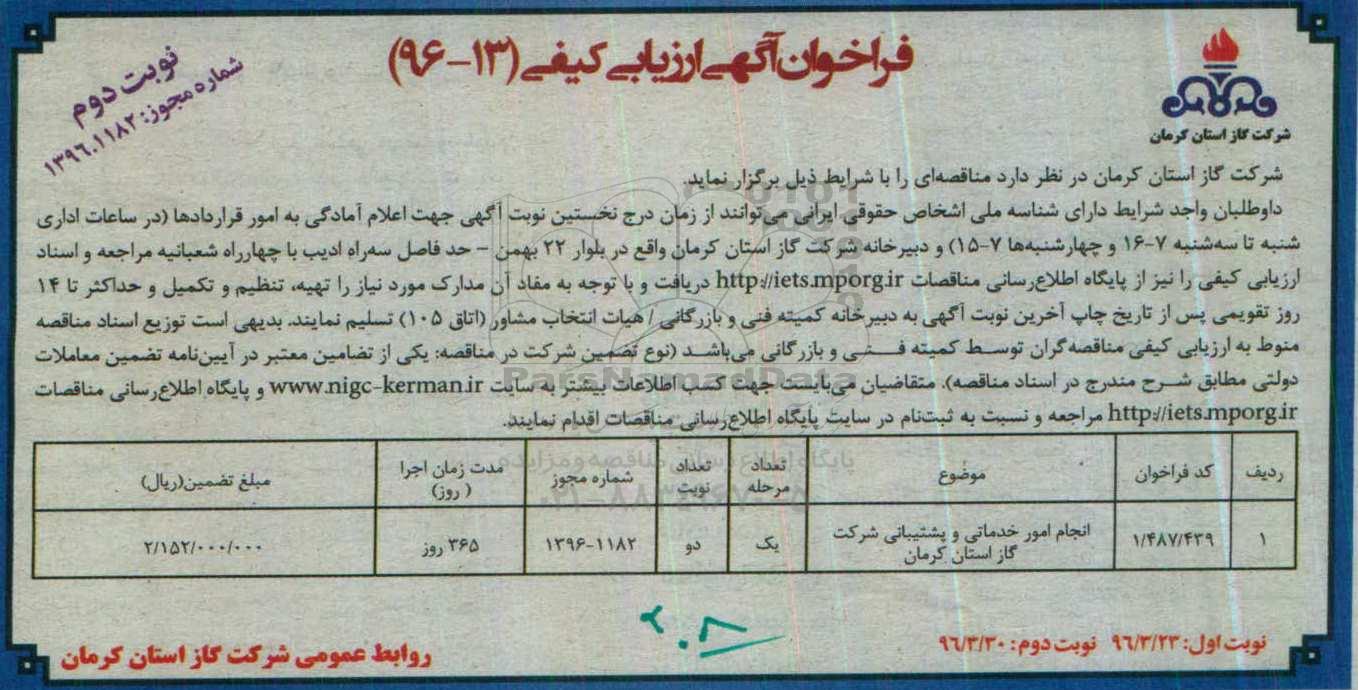 فراخوان آگهی ارزیابی کیفی (۱۳-۹۶)
نوبت دوم
شماره مجوز: ۱۳۹۶.۱۱۸۲
شرکت گاز استان کرمان
شرکت گاز استان کرمان در نظر دارد مناقصه‌ای را با شرایط ذیل برگزار نماید.
داوطلبان واجد شرایط دارای شناسه ملی اشخاص حقوقی ایرانی می‌توانند از زمان درج نخستین نوبت آگهی جهت اعلام آمادگی به امور قراردادها (در ساعات اداری
شنبه تا سه‌شنبه ۷-۱۶ و چهارشنبه‌ها ۷-۱۵) و دبیرخانه شرکت گاز استان کرمان واقع در بلوار ۲۲ بهمن – حد فاصل سه‌راه ادیب با چهارراه شعبانیه مراجعه و اسناد
ارزیابی کیفی را نیز از پایگاه اطلاع‌رسانی مناقصات http://iets.mporg.ir دریافت و با توجه به مفاد آن مدارک مورد نیاز را تهیه، تنظیم و تکمیل و حداکثر تا ۱۴
روز تقویمی پس از تاریخ چاپ آخرین نوبت آگهی به دبیرخانه کمیته فنی و بازرگانی / هیات انتخاب مشاور (اتاق ۱۰۵) تسلیم نمایند. بدیهی است توزیع اسناد مناقصه
منوط به ارزیابی کیفی مناقصه‌گران توسط کمیته فنی و بازرگانی می‌باشد (نوع تضمین شرکت در مناقصه: یکی از تضامین معتبر در آیین‌نامه تضمین معاملات
دولتی مطابق شرح مندرج در اسناد مناقصه). متقاضیان می‌بایست جهت کسب اطلاعات بیشتر به سایت www.nigc-kerman.ir و پایگاه اطلاع‌رسانی مناقصات
http://iets.mporg.ir مراجعه و نسبت به ثبت‌نام در سایت پایگاه اطلاع‌رسانی مناقصات اقدام نمایند.
ردیف کد فراخوان موضوع تعداد مرحله تعداد نوبت شماره مجوز مدت زمان اجرا (روز) مبلغ تضمین(ریال)
۱ ۱/۴۸۷/۴۳۹ انجام امور خدماتی و پشتیبانی شرکت گاز استان کرمان یک دو ۱۳۹۶-۱۱۸۲ ۳۶۵ روز ۲/۱۵۲/۰۰۰/۰۰۰
نوبت اول: ۹۶/۳/۲۳ نوبت دوم: ۹۶/۳/۳۰
روابط عمومی شرکت گاز استان کرمان
ParsNamadData
پایگاه اطلاع رسانی مناقصه و مزایده